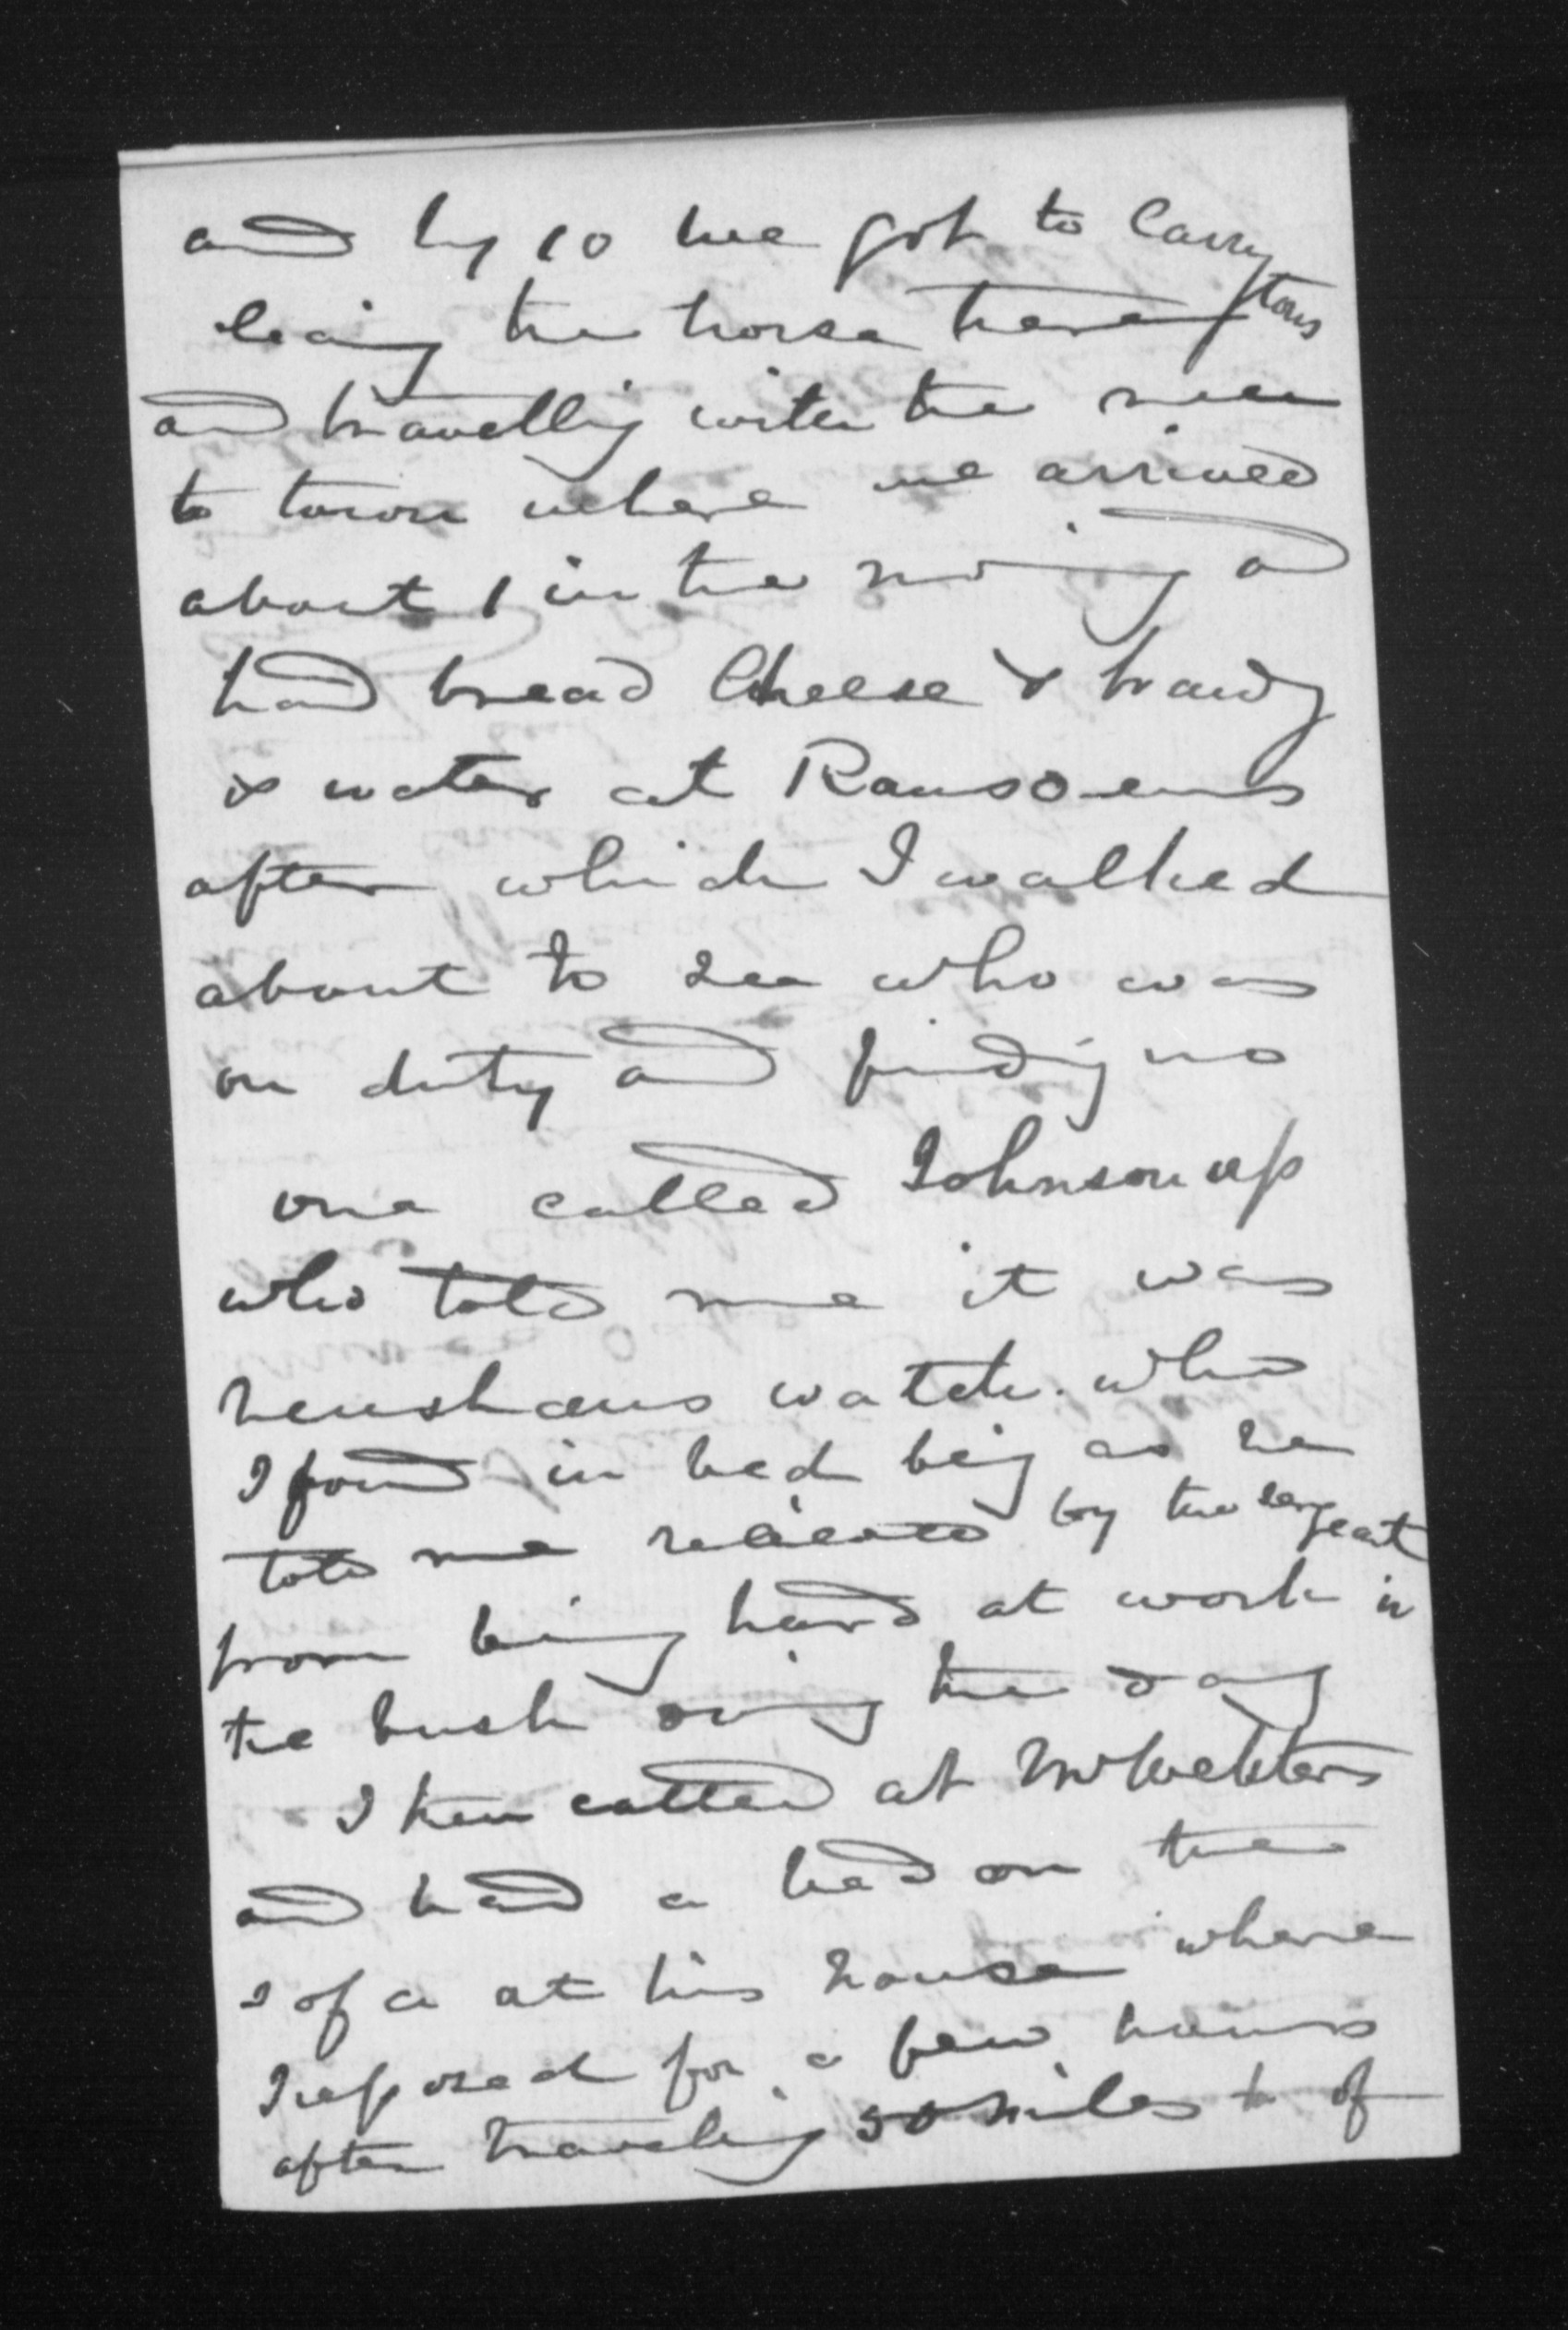 and by 10 we got to Carrystons
leaving the horse there
and travelling with the men
to town where we arrived
about 1 in the morning and
had bread Cheese & brandy
& water at Ransomes
after which I walked
about to see who was
on duty and finding no
one called Johnson up
who told me it was
henshaws watch. who
I found in bed being as he
told me relieved by the sergeant
from being hard at work in
the bush during the day
I then called at Mr Websters
and had a bed on the
sofa at his house where
I reposed for a few hours
after traveling 50 miles to of